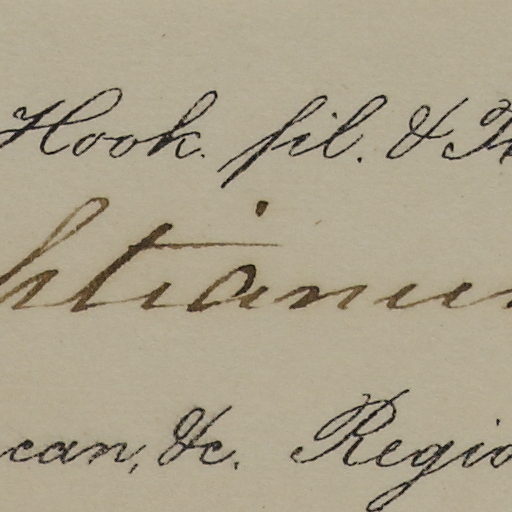 Hook. fil. & T
htianum
can, &c. Regio